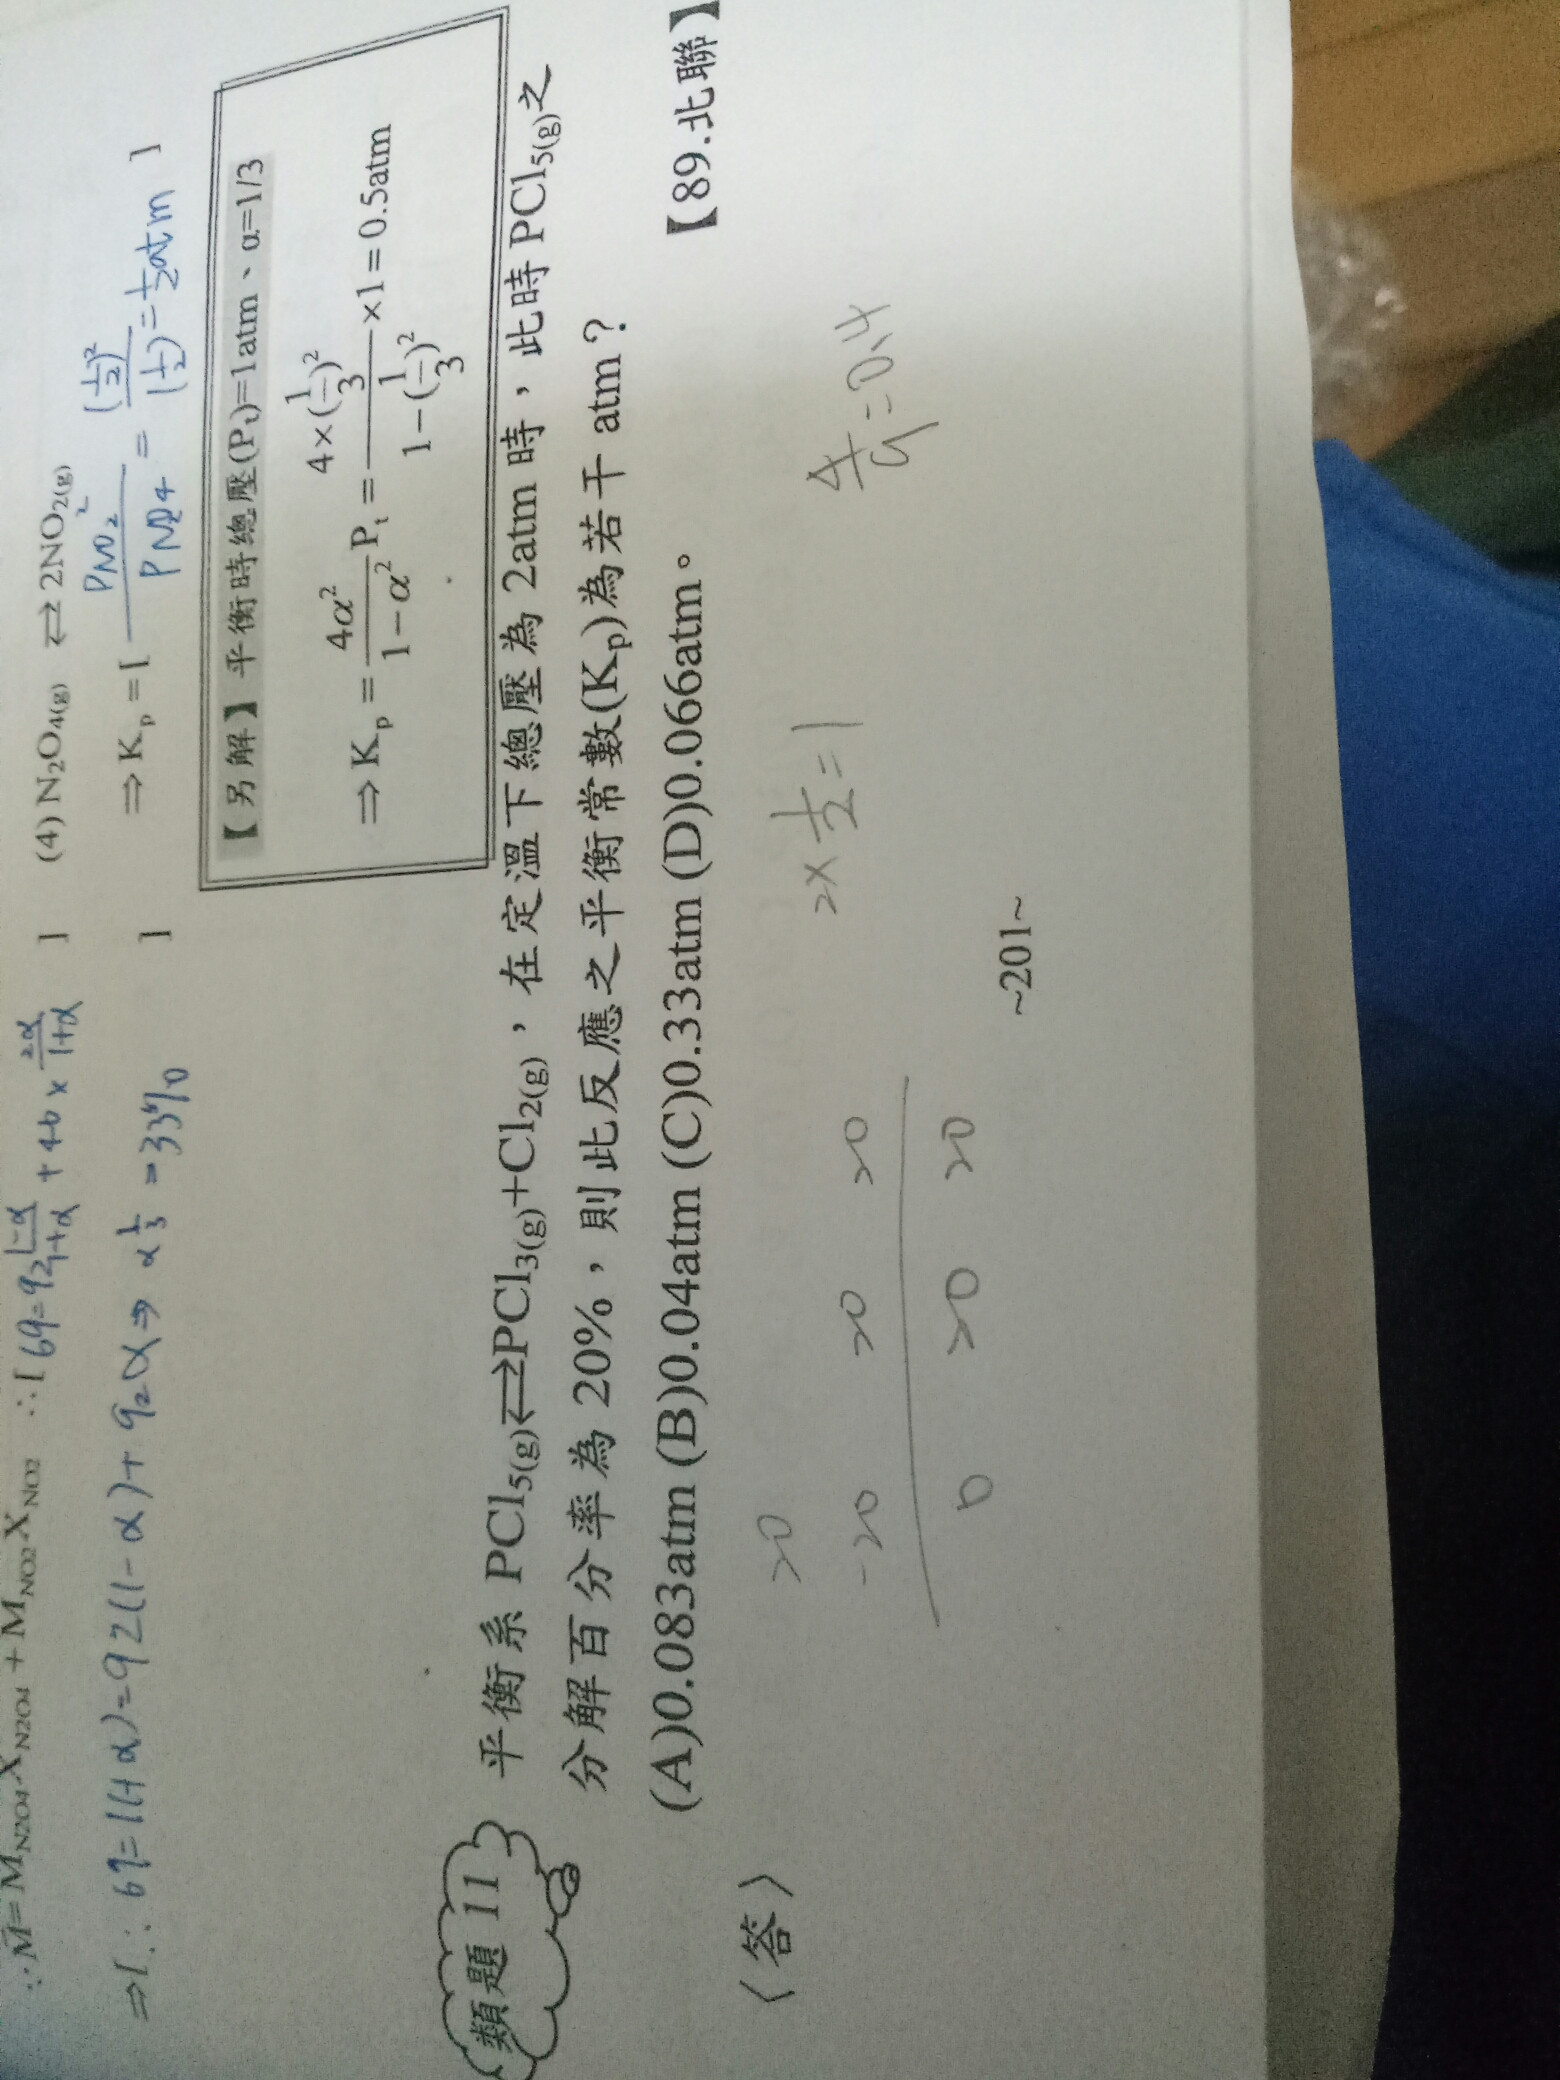 ∵M̄=M_N2O4·X_N2O4+M_NO2·X_NO2 ∴[69=92 (1-α)/(1+α) + 46 × 2α/(1+α) ]
⇒[∴69=1(1+α)=92(1-α)+92α⇒α 1/3 =33% ]
(4) N₂O₄(g) ⇌ 2NO₂(g)
⇒K_p=[ P_NO₂²/ = (1/2)²/(1/2) = 1/2 atm ]
【另解】平衡時總壓(P_t)=1atm、α=1/3
⇒K_p = 4α²/(1−α²) P_t = 4×(1/3)²/(1−(1/3)²) ×1=0.5atm
類題 11
平衡系 PCl₅(g)⇌PCl₃(g)+Cl₂(g),在定溫下總壓為 2atm 時,此時 PCl₅(g)之
分解百分率為 20%,則此反應之平衡常數(K_p)為若干 atm?
(A)0.083atm (B)0.04atm (C)0.33atm (D)0.066atm。 【89.北聯】
〈答〉
20
-20 20 20
0 20 20
2×1/2=1
~201~